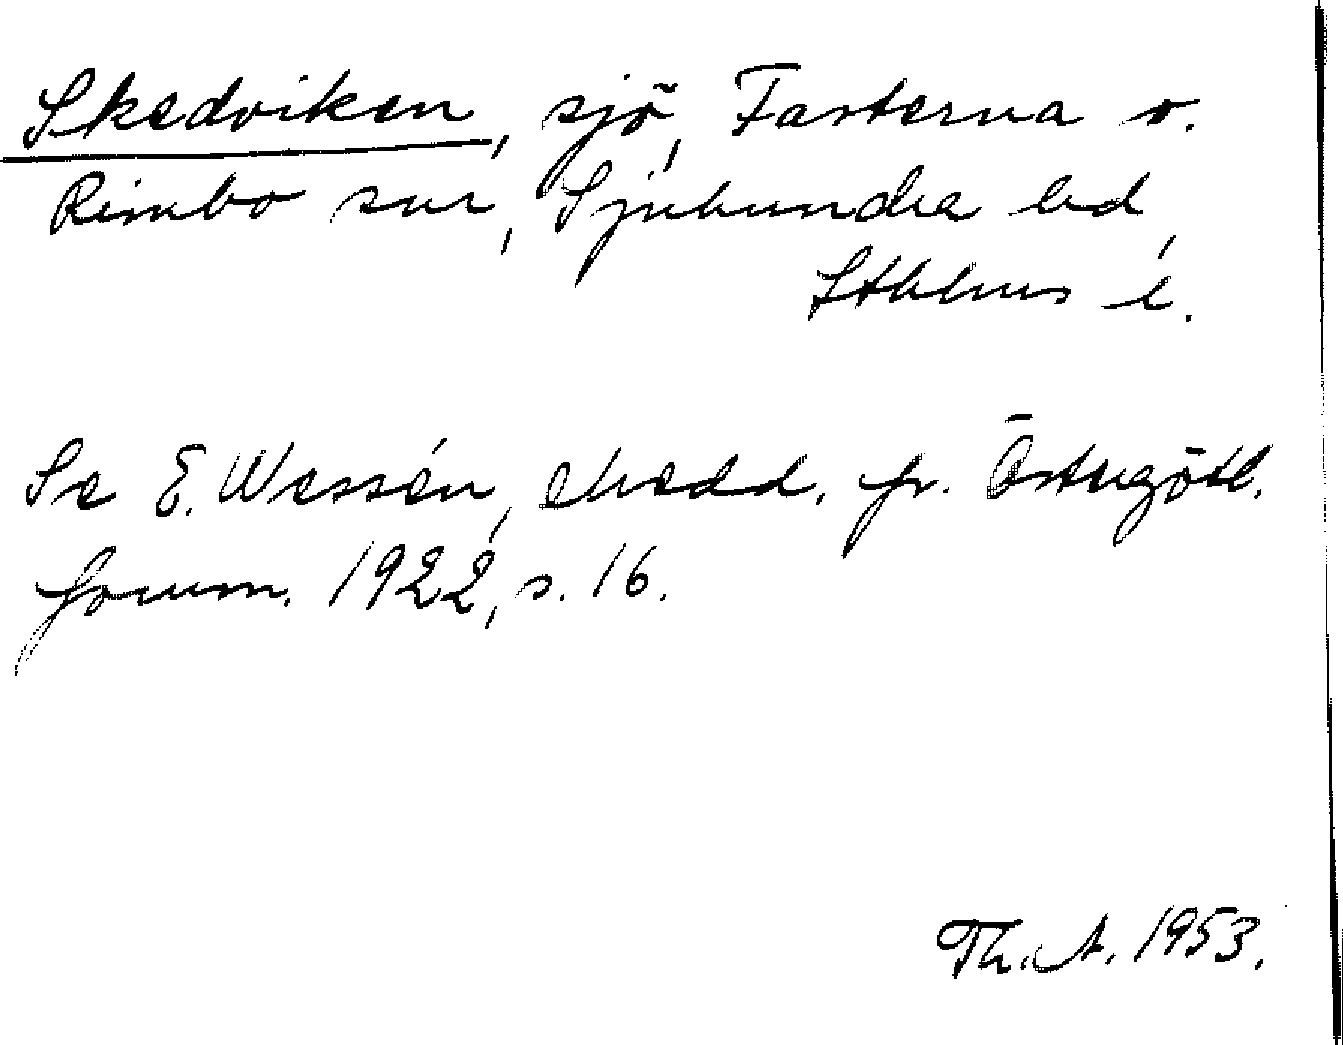 Skedviken, sjö, Fasterna o.
Rimbo snr, Sjuhundra hd,
Sthlms l.
Se E. Wessén, Medd. fr. Östergötl.
fornm. 1922, s. 16.
Th. A. 1953.